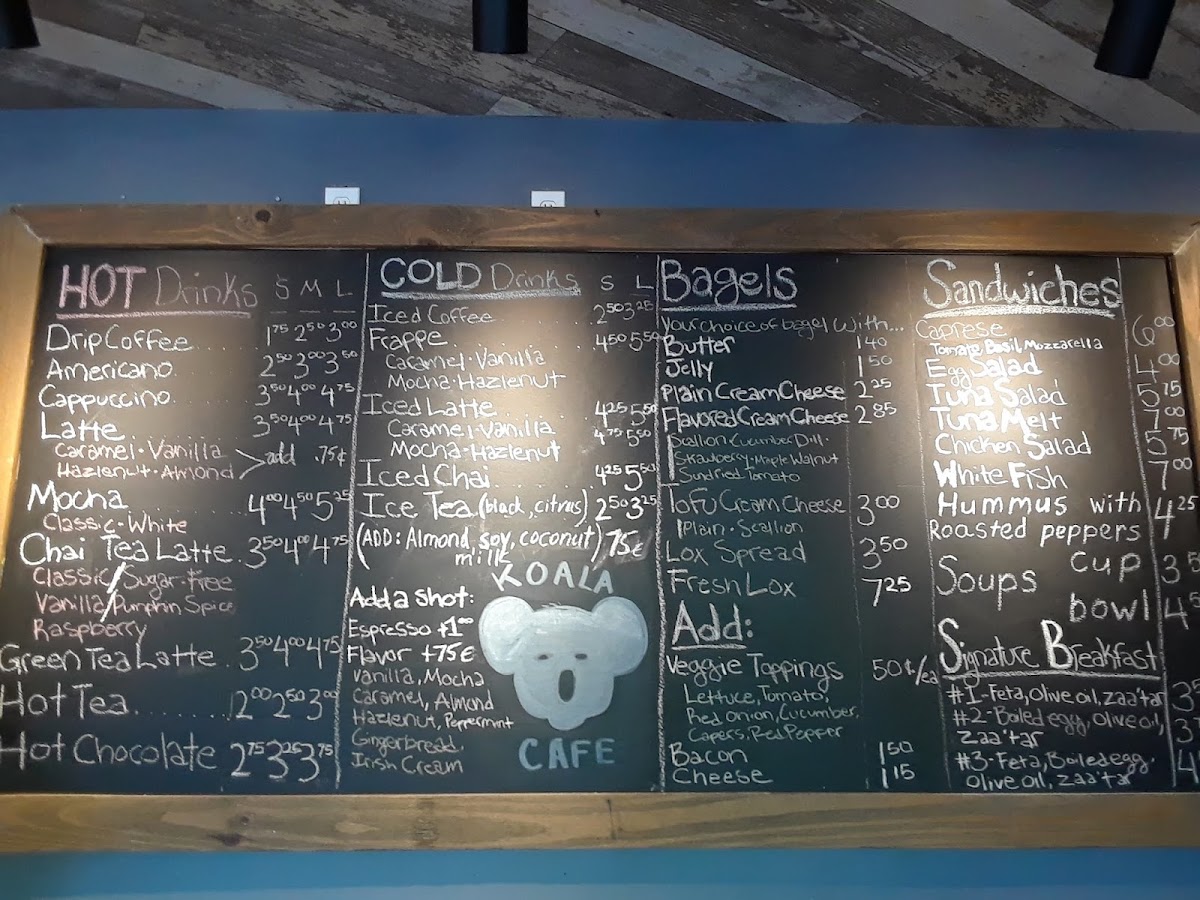 HOT Drinks S M L
Drip Coffee 1.75 2.50 3.00
Americano 2.50 3.00 3.50
Cappuccino 3.50 4.00 4.75
Latte 3.50 4.00 4.75
Caramel · Vanilla
Hazlenut · Almond > add .75¢
Mocha 4.00 4.50 5.25
Classic · White
Chai Tea Latte 3.50 4.00 4.75
Classic / Sugar-free
Vanilla / Pumpkin Spice
Raspberry
Green Tea Latte 3.50 4.00 4.75
Hot Tea 2.00 2.50 3.00
Hot Chocolate 2.75 3.25 3.75
COLD Drinks S L
Iced Coffee 2.50 3.25
Frappe 4.50 5.50
Caramel · Vanilla
Mocha · Hazlenut
Iced Latte 4.25 5.50
Caramel · Vanilla 4.75 5.50
Mocha · Hazlenut
Iced Chai 4.25 5.50
Ice Tea (black, citrus) 2.50 3.25
(ADD: Almond, soy, coconut) 75¢
milk
Add a shot:
Espresso +1.00
Flavor +75¢
Vanilla, Mocha
Caramel, Almond
Hazlenut, Peppermint
Gingerbread,
Irish Cream
KOALA
CAFE
Bagels
your choice of bagel with...
Butter 1.40
Jelly 1.50
Plain Cream Cheese 2.25
Flavored Cream Cheese 2.85
Scallion · Cucumber Dill ·
Strawberry · Maple Walnut
Sundried Tomato
Tofu Cream Cheese 3.00
Plain · Scallion
Lox Spread 3.50
Fresh Lox 7.25
Add:
Veggie Toppings 50¢/ea
Lettuce, Tomato,
Red onion, Cucumber,
Capers, Red Pepper
Bacon 1.50
Cheese 1.15
Sandwiches
Caprese 6.00
Tomato, Basil, Mozzarella
Egg Salad 4.00
Tuna Salad 5.75
Tuna Melt 7.00
Chicken Salad 5.75
White Fish 7.00
Hummus with 4.25
Roasted peppers
Soups cup 3.5
bowl 4.5
Signature Breakfast
#1 - Feta, Olive oil, zaa'tar 3
#2 - Boiled egg, olive oil, 3
zaa'tar
#3 - Feta, Boiled egg, 4
Olive oil, zaa'tar